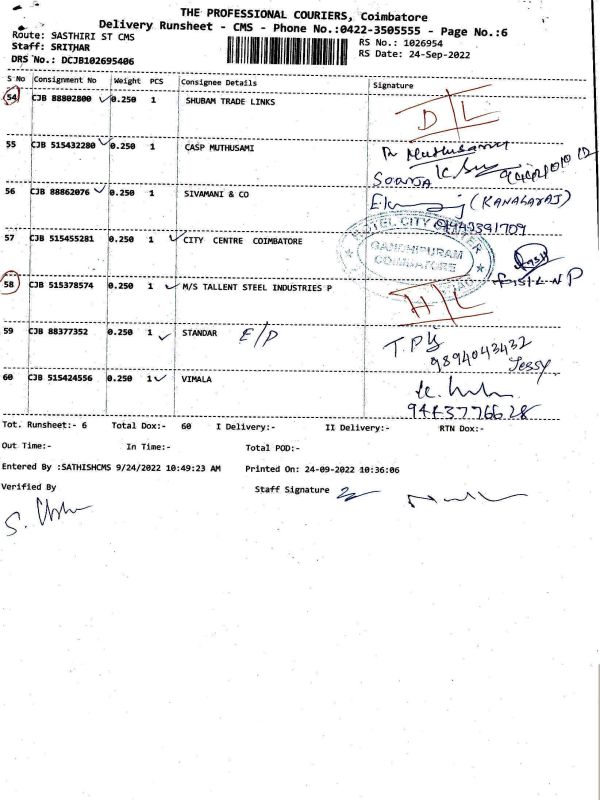 THE PROFESSIONAL COURIERS, Coimbatore
Delivery Runsheet - CMS - Phone No.:0422-3505555 - Page No.:6
Route: SASTHIRI ST CMS
RS No.: 1026954
Staff: SRITHAR
RS Date: 24-Sep-2022
DRS No.: DCJB102695406
S No Consignment No Weight PCS Consignee Details Signature
54 CJB 88802800 0.250 1 SHUBAM TRADE LINKS D/L
55 CJB 515432280 0.250 1 CASP MUTHUSAMI Muthusamy
56 CJB 88862076 0.250 1 SIVAMANI & CO (KANAGARAJ)
57 CJB 515455281 0.250 1 CITY CENTRE COIMBATORE
HOTEL CITY CENTER
GANDHIPURAM
COIMBATORE
58 CJB 515378574 0.250 1 M/S TALLENT STEEL INDUSTRIES P H/L
59 CJB 88377352 0.250 1 STANDAR E/P
9894043432
Jessy
60 CJB 515424556 0.250 1 VIMALA
9443776628
Tot. Runsheet:- 6 Total Dox:- 60 I Delivery:- II Delivery:- RTN Dox:-
Out Time:- In Time:- Total POD:-
Entered By :SATHISHCMS 9/24/2022 10:49:23 AM Printed On: 24-09-2022 10:36:06
Verified By Staff Signature